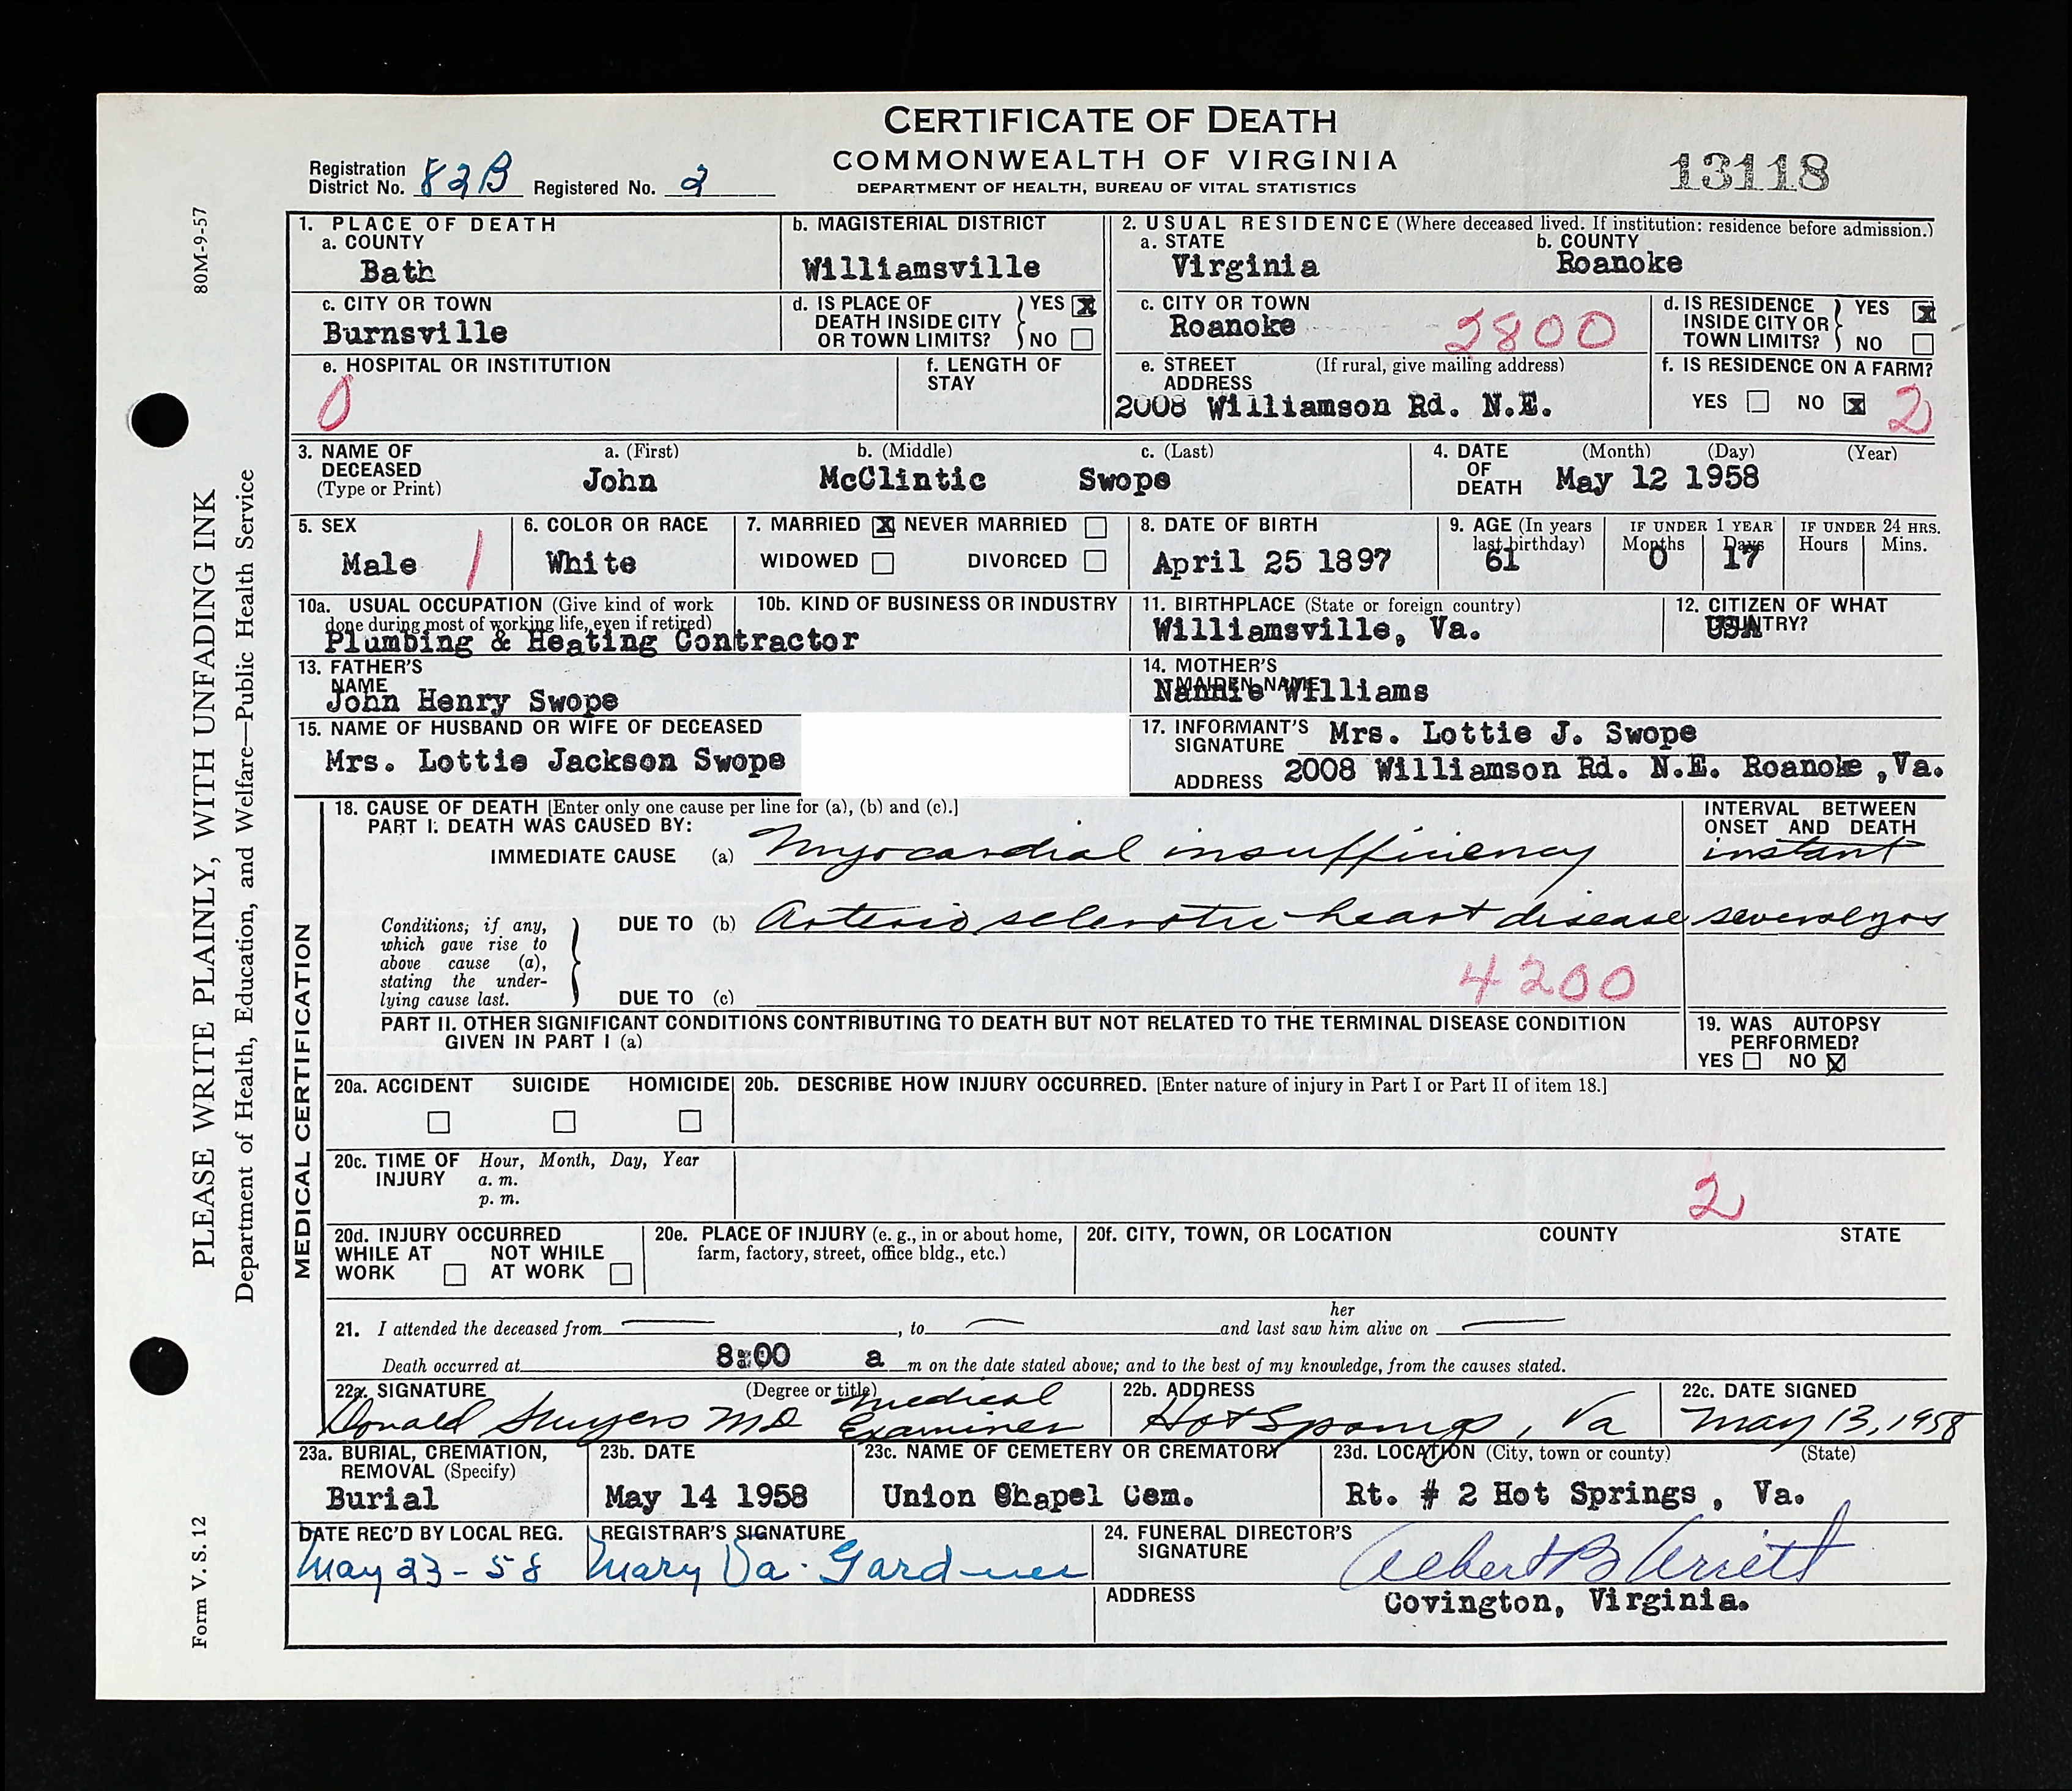 CERTIFICATE OF DEATH
COMMONWEALTH OF VIRGINIA
DEPARTMENT OF HEALTH, BUREAU OF VITAL STATISTICS
13118
Registration
District No. 82B Registered No. 2
80M-9-57
PLEASE WRITE PLAINLY, WITH UNFADING INK
Department of Health, Education, and Welfare—Public Health Service
Form V. S. 12
1. PLACE OF DEATH
a. COUNTY
Bath
b. MAGISTERIAL DISTRICT
Williamsville
2. USUAL RESIDENCE (Where deceased lived. If institution: residence before admission.)
a. STATE
Virginia
b. COUNTY
Roanoke
c. CITY OR TOWN
Burnsville
d. IS PLACE OF
DEATH INSIDE CITY
OR TOWN LIMITS?
YES X
NO
c. CITY OR TOWN
Roanoke
2800
d. IS RESIDENCE
INSIDE CITY OR
TOWN LIMITS?
YES X
NO
e. HOSPITAL OR INSTITUTION
0
f. LENGTH OF
STAY
e. STREET (If rural, give mailing address)
ADDRESS
2008 Williamson Rd. N.E.
f. IS RESIDENCE ON A FARM?
YES NO X
2
3. NAME OF
DECEASED
(Type or Print)
a. (First)
John
b. (Middle)
McClintic
c. (Last)
Swope
4. DATE
OF
DEATH
(Month) (Day) (Year)
May 12 1958
5. SEX
Male
1
6. COLOR OR RACE
White
7. MARRIED X NEVER MARRIED
WIDOWED DIVORCED
8. DATE OF BIRTH
April 25 1897
9. AGE (In years
last birthday)
61
IF UNDER 1 YEAR
Months Days
0 17
IF UNDER 24 HRS.
Hours Mins.
10a. USUAL OCCUPATION (Give kind of work
done during most of working life, even if retired)
10b. KIND OF BUSINESS OR INDUSTRY
Plumbing & Heating Contractor
11. BIRTHPLACE (State or foreign country)
Williamsville, Va.
12. CITIZEN OF WHAT
COUNTRY?
USA
13. FATHER'S
NAME
John Henry Swope
14. MOTHER'S
MAIDEN NAME
Nannie Williams
15. NAME OF HUSBAND OR WIFE OF DECEASED
Mrs. Lottie Jackson Swope
17. INFORMANT'S
SIGNATURE Mrs. Lottie J. Swope
ADDRESS 2008 Williamson Rd. N.E. Roanoke ,Va.
MEDICAL CERTIFICATION
18. CAUSE OF DEATH [Enter only one cause per line for (a), (b) and (c).]
PART I. DEATH WAS CAUSED BY:
IMMEDIATE CAUSE (a) Myocardial insufficiency
INTERVAL BETWEEN
ONSET AND DEATH
instant
Conditions, if any,
which gave rise to
above cause (a),
stating the under-
lying cause last.
DUE TO (b) Arterio sclerotic heart disease several yrs
4200
DUE TO (c)
PART II. OTHER SIGNIFICANT CONDITIONS CONTRIBUTING TO DEATH BUT NOT RELATED TO THE TERMINAL DISEASE CONDITION
GIVEN IN PART I (a)
19. WAS AUTOPSY
PERFORMED?
YES NO X
20a. ACCIDENT SUICIDE HOMICIDE
20b. DESCRIBE HOW INJURY OCCURRED. [Enter nature of injury in Part I or Part II of item 18.]
20c. TIME OF Hour, Month, Day, Year
INJURY a. m.
p. m.
2
20d. INJURY OCCURRED
WHILE AT NOT WHILE
WORK AT WORK
20e. PLACE OF INJURY (e. g., in or about home,
farm, factory, street, office bldg., etc.)
20f. CITY, TOWN, OR LOCATION COUNTY STATE
her
21. I attended the deceased from , to and last saw him alive on
Death occurred at 8:00 a m on the date stated above; and to the best of my knowledge, from the causes stated.
22a. SIGNATURE (Degree or title)
Donald Myers MD Medical Examiner
22b. ADDRESS
Hot Springs, Va
22c. DATE SIGNED
May 13, 1958
23a. BURIAL, CREMATION,
REMOVAL (Specify)
Burial
23b. DATE
May 14 1958
23c. NAME OF CEMETERY OR CREMATORY
Union Chapel Cem.
23d. LOCATION (City, town or county) (State)
Rt. # 2 Hot Springs , Va.
DATE REC'D BY LOCAL REG.
May 23 - 58
REGISTRAR'S SIGNATURE
Mary Va. Gardner
24. FUNERAL DIRECTOR'S
SIGNATURE
Albert B Arritt
ADDRESS
Covington, Virginia.